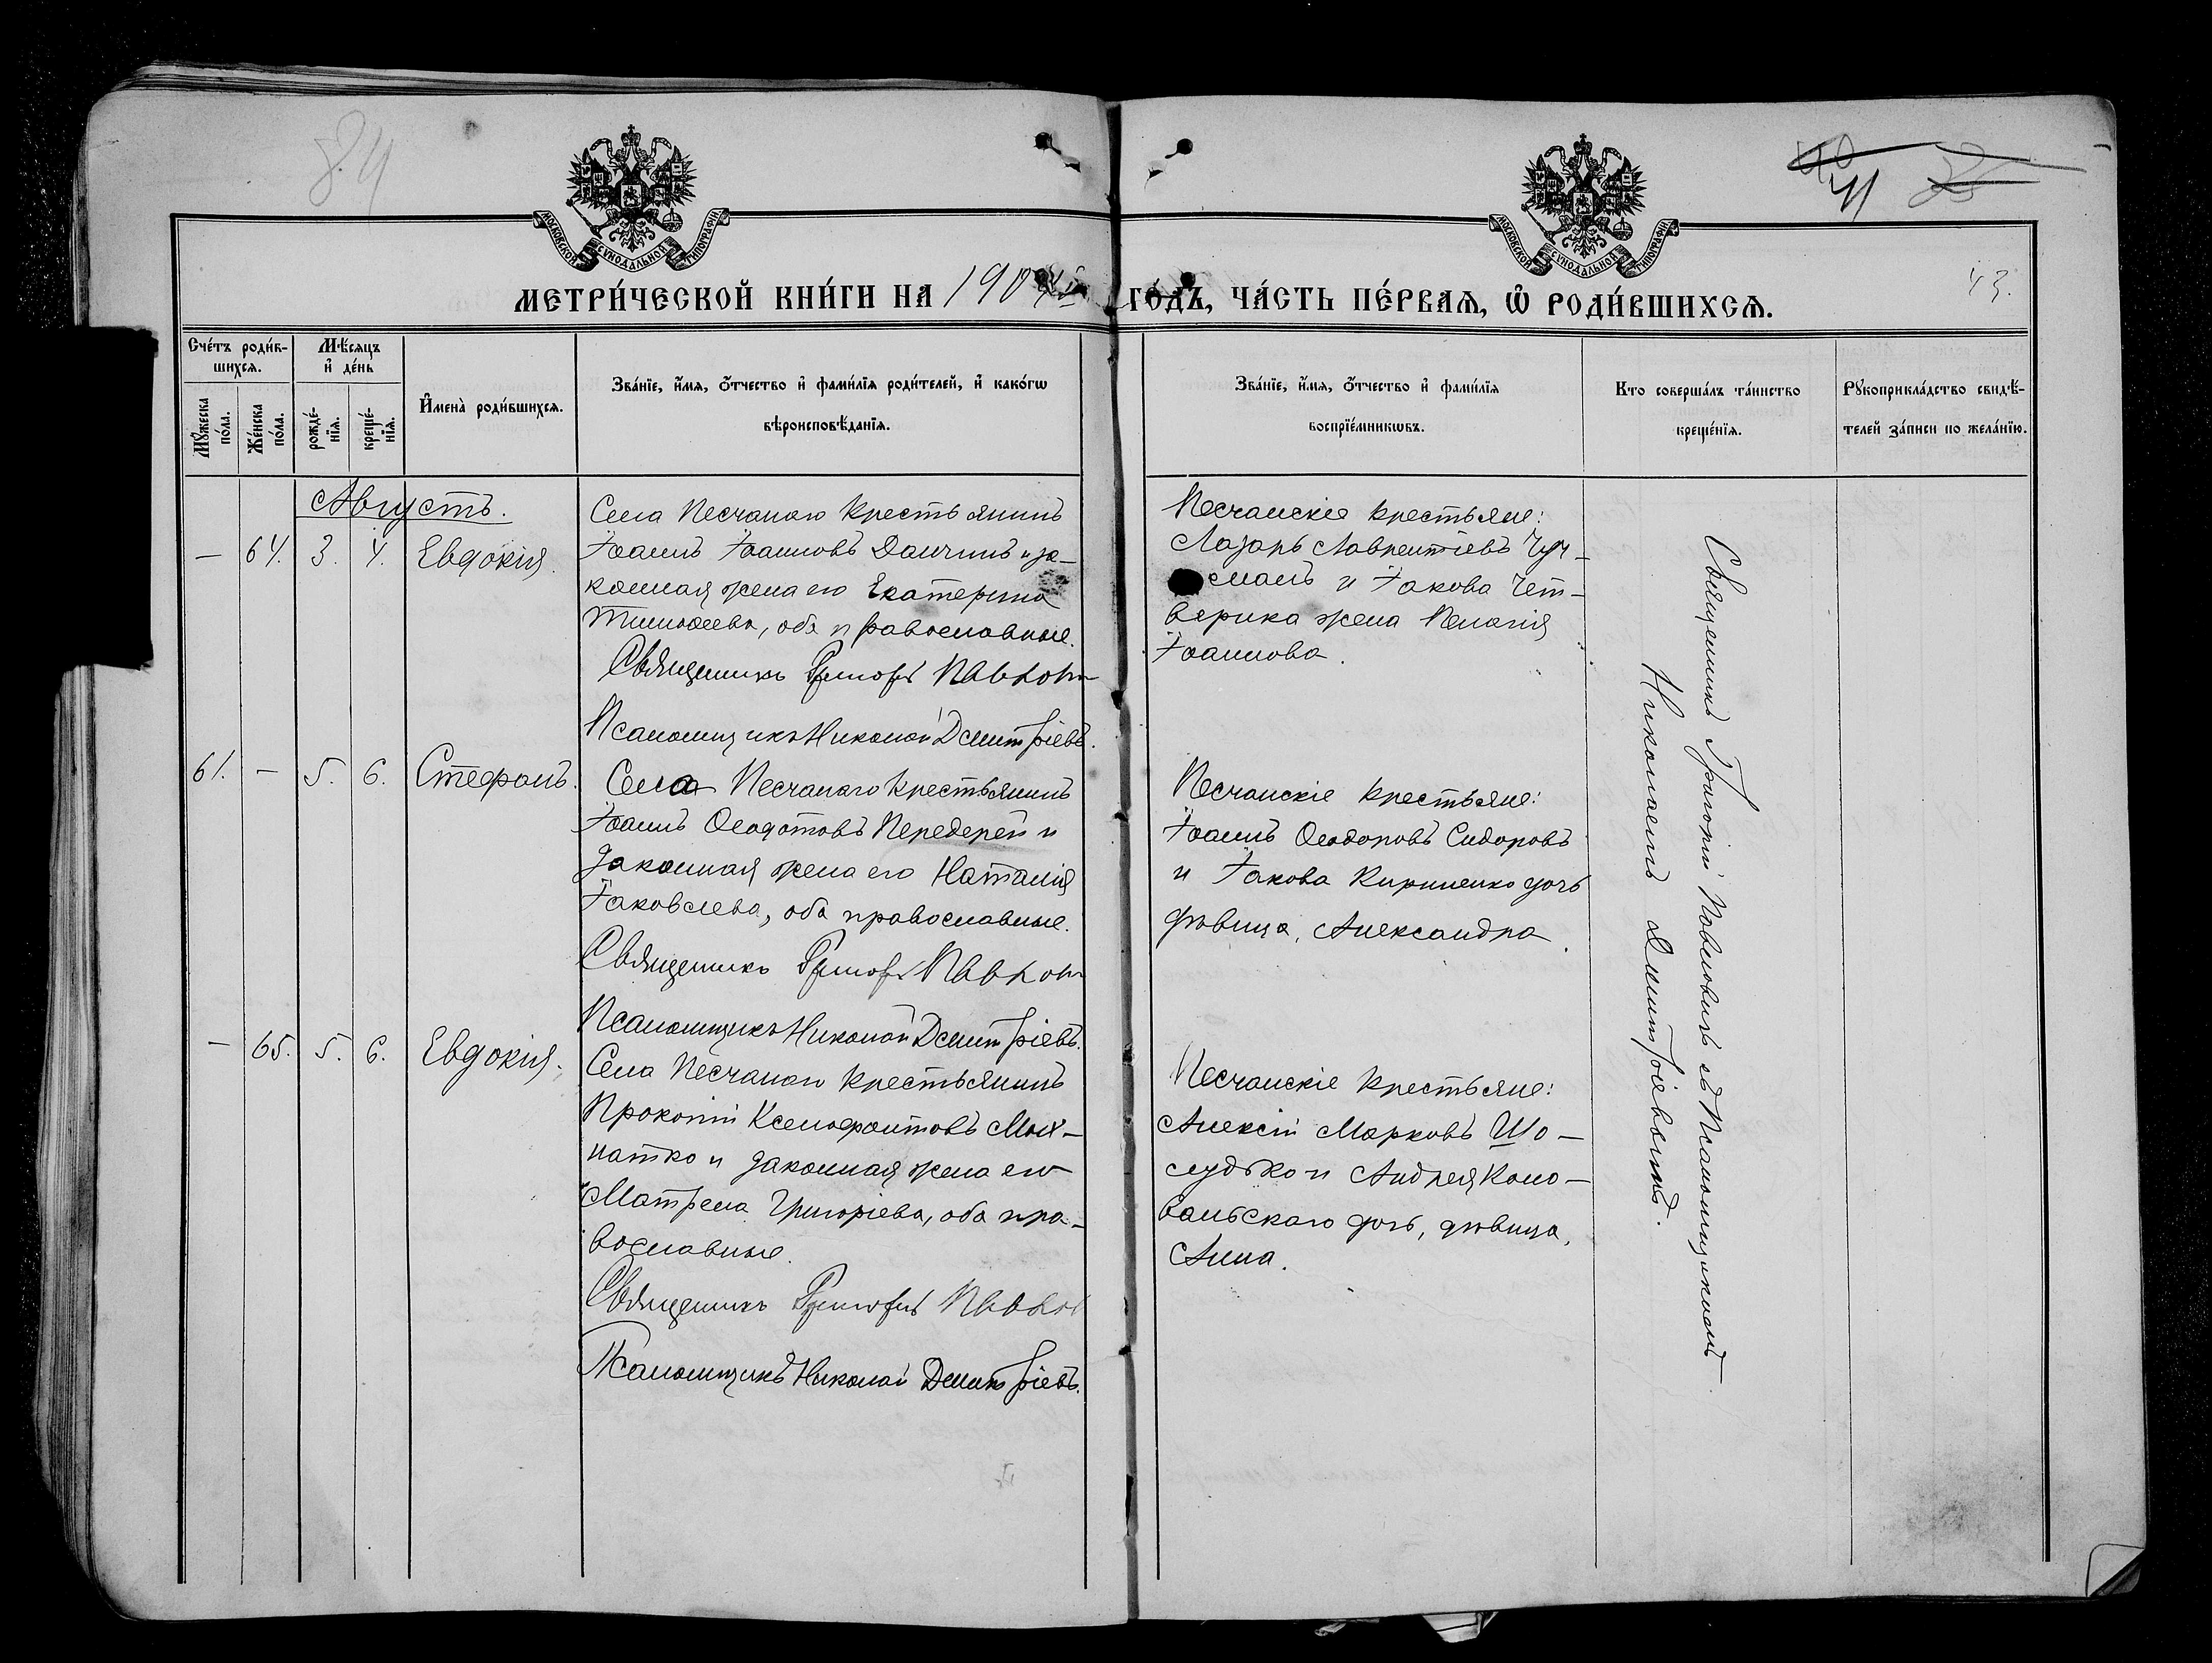 84
41
43.
МОСКОВСКОЙ СѴНОДАЛЬНОЙ ТИПОГРАФІИ
МОСКОВСКОЙ СѴНОДАЛЬНОЙ ТИПОГРАФІИ
МЕТРИ́ЧЕСКОЙ КНИ́ГИ НА 190 ГО́ДЪ, ЧА́СТЬ ПЕ́РВАѦ, Ѡ҆ РОДИ́ВШИХСѦ.
Сче́тъ роди́в-
шихсѧ.
Мꙋ́жеска
по́ла.
Же́нска
по́ла.
Мѣ́сѧцъ
и҆ де́нь
рожде́-
нїѧ.
креще́-
нїѧ.
И҆мена̀ роди́вшихсѧ.
Зва́нїе, и҆́мѧ, ѻ҆́тчество и҆ фами́лїѧ роди́телей, и҆ како́гѡ
вѣроисповѣ́данїѧ.
Зва́нїе, и҆́мѧ, ѻ҆́тчество и҆ фами́лїѧ
воспрїе́мникѡвъ.
Кто соверша́лъ та́инство
креще́нїѧ.
Рꙋкоприкла́дство свидѣ́-
телей за́писи по жела́нїю.
Августъ.
— 64. 3. 4. Евдокія.
Села Песчанаго крестьянинъ
Іоаннъ Іоанновъ Данчинъ и за-
конная жена его Екатерина
Тимоѳеева, оба православные.
Священникъ Григорій Павлов
Псаломщикъ Николай Дмитріевъ.
Песчанскіе крестьяне:
Лазарь Лаврентіевъ Чуч-
манъ и Іакова Чет-
верика жена Пелагія
Іоаннова.
61. — 5. 6. Стефанъ.
Села Песчанаго крестьянинъ
Іоаннъ Ѳеодотовъ Передерей и
законная жена его Наталія
Іаковлева, оба православные.
Священникъ Григорій Павлов
Псаломщикъ Николай Дмитріевъ.
Песчанскіе крестьяне:
Іоаннъ Ѳеодоровъ Сидоровъ
и Іакова Кириленко дочь
дѣвица, Александра.
— 65. 5. 6. Евдокія.
Села Песчанаго крестьянинъ
Прокопій Ксенофонтовъ Мох-
натко и законная жена его
Матрена Григоріева, оба пра-
вославные.
Священникъ Григорій Павлов
Псаломщикъ Николай Дмитріевъ.
Песчанскіе крестьяне:
Алексій Марковъ Шо-
лудько и Андрея Коно-
вальскаго дочь, дѣвица,
Анна.
Священникъ Григорій Павловичъ съ Псаломщикомъ
Николаемъ Дмитріевымъ.